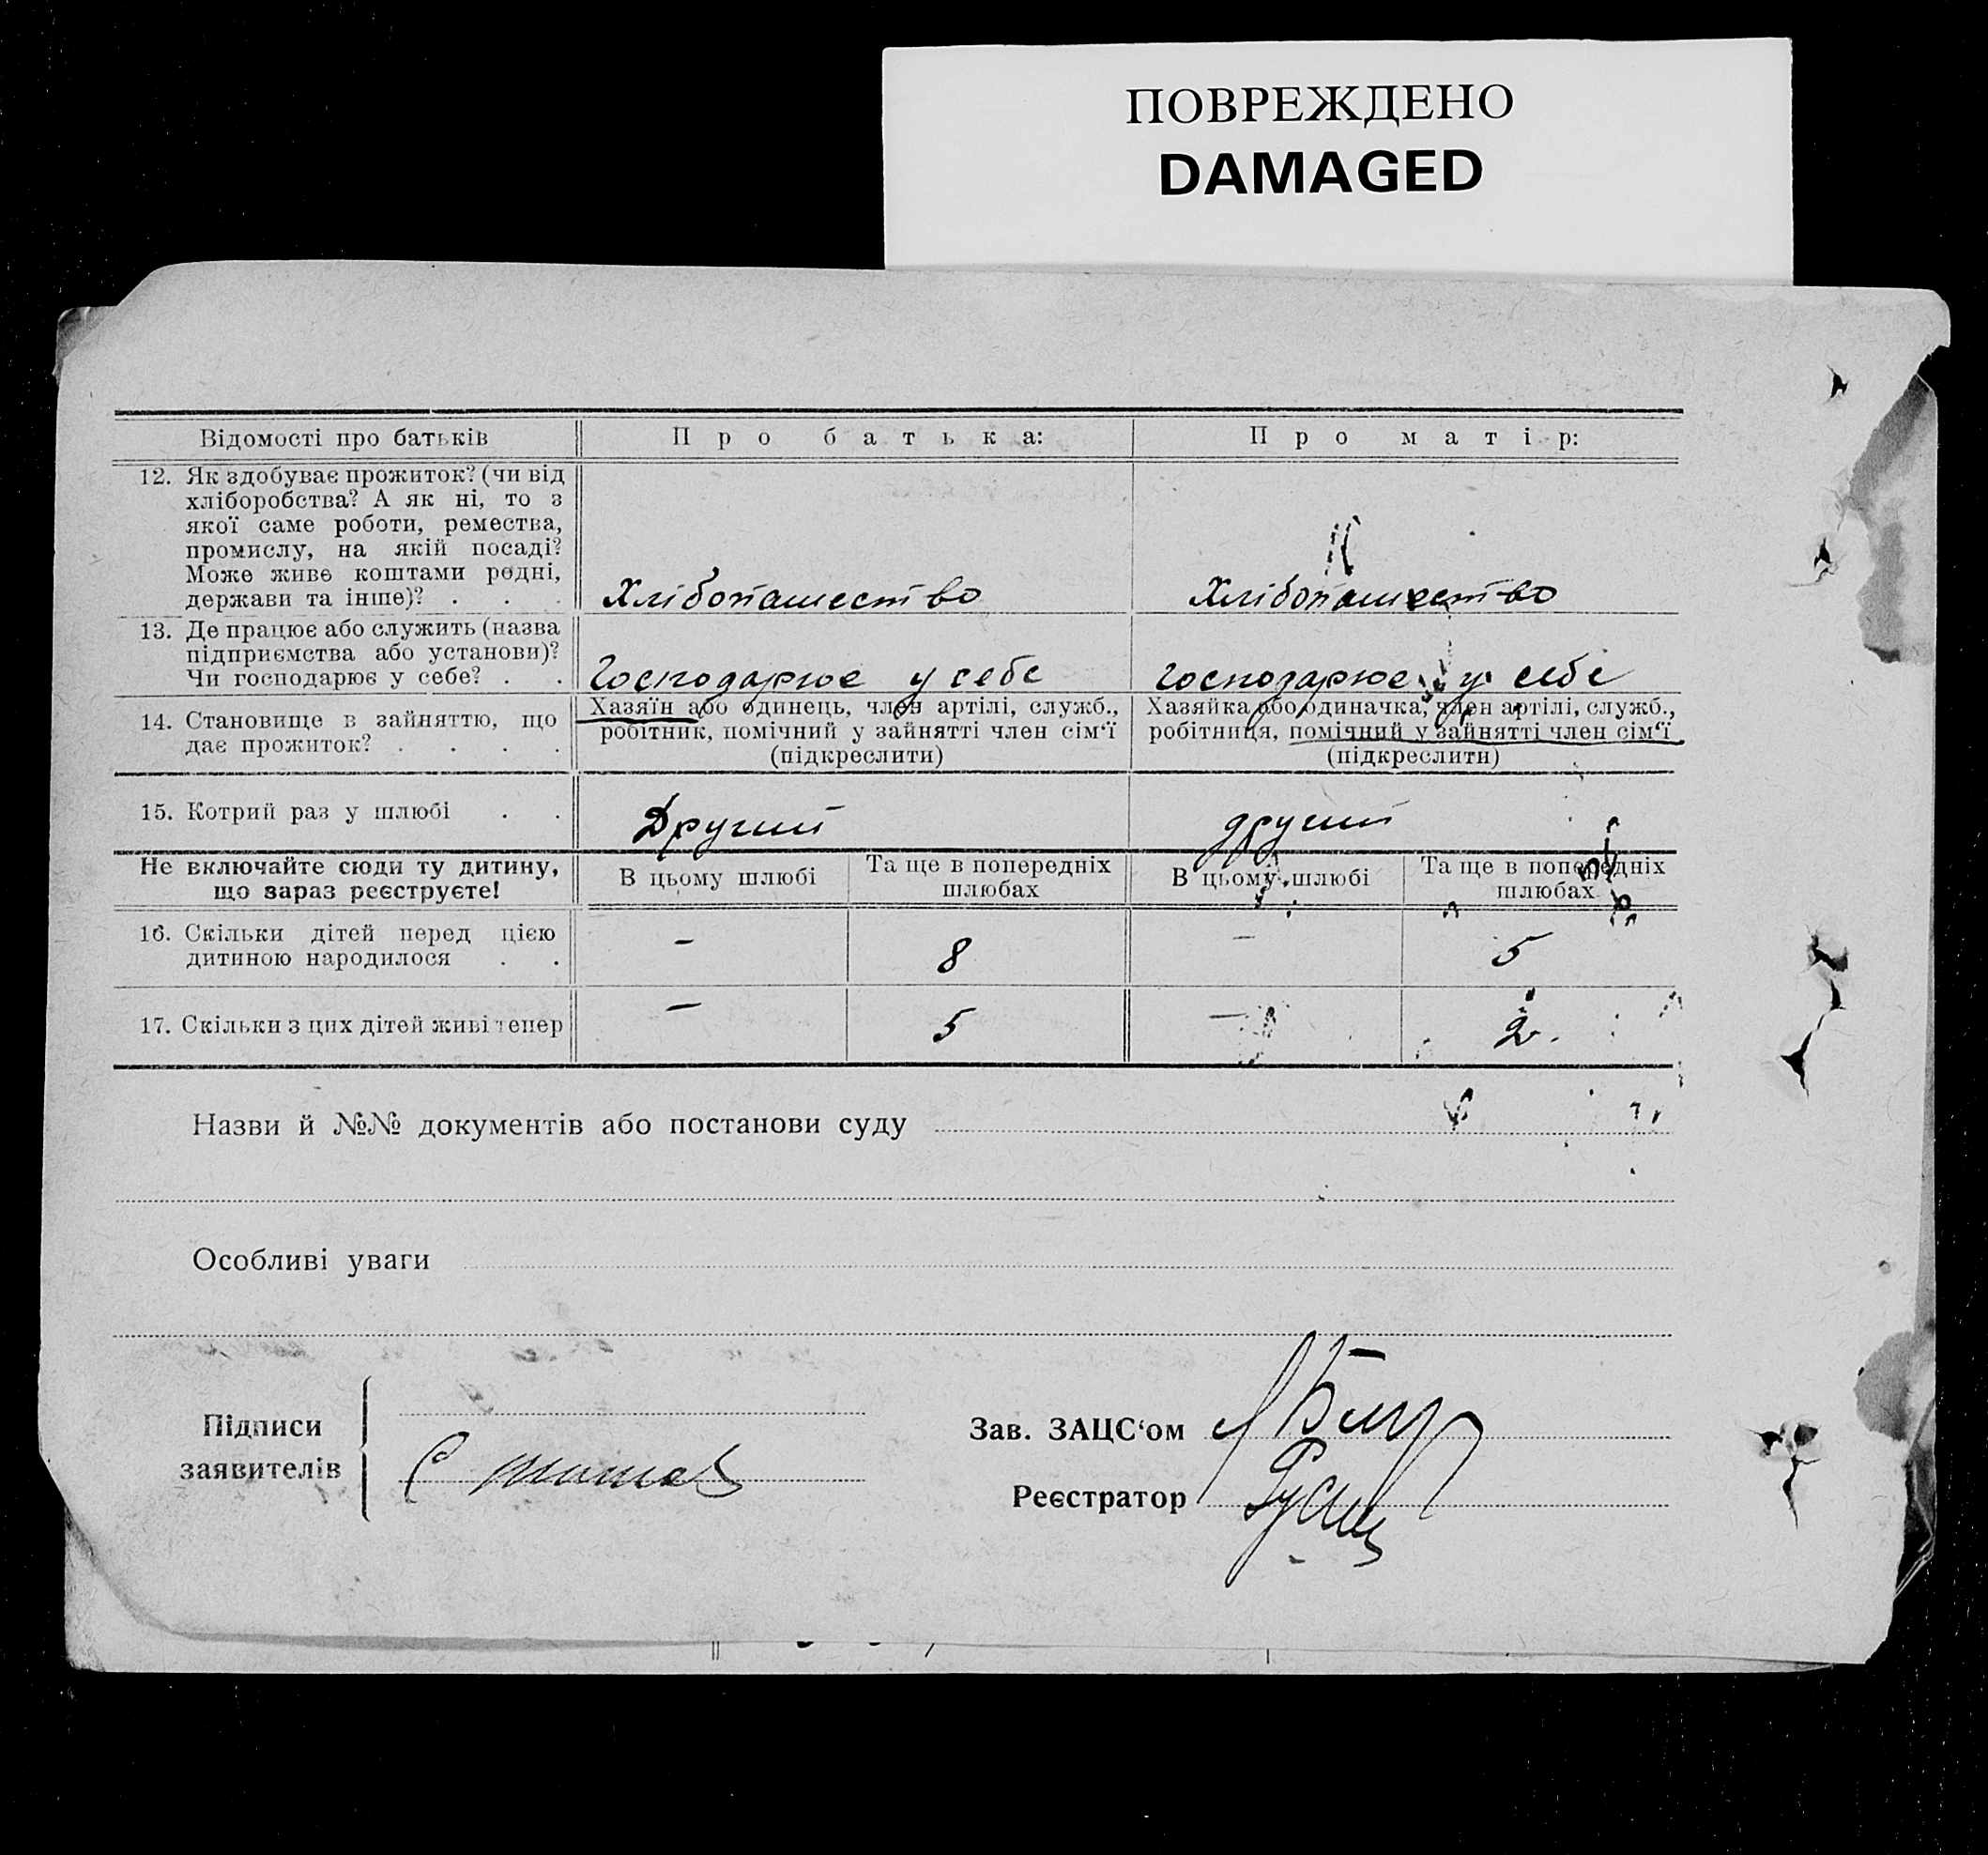 ПОВРЕЖДЕНО
DAMAGED
Відомості про батьків
Про батька:
Про матір:
12. Як здобуває прожиток? (чи від
хліборобства? А як ні, то з
якої саме роботи, ремества,
промислу, на якій посаді?
Може живе коштами родні,
держави та інше)? . . .
Хлібопашество
Хлібопашество
13. Де працює або служить (назва
підприємства або установи)?
Чи господарює у себе? . .
Господарює у себе
Господарює у себе
14. Становище в зайняттю, що
дає прожиток? . . . .
Хазяїн або одинець, член артілі, служб.,
робітник, помічний у зайнятті член сім‘ї
(підкреслити)
Хазяйка або одиначка, член артілі, служб.,
робітниця, помічний у зайнятті член сім‘ї
(підкреслити)
15. Котрий раз у шлюбі . .
Другий
другий
Не включайте сюди ту дитину,
що зараз реєструєте!
В цьому шлюбі
Та ще в попередніх
шлюбах
В цьому шлюбі
Та ще в попередніх
шлюбах
16. Скільки дітей перед цією
дитиною народилося . .
-
8
-
5
17. Скільки з цих дітей живі тепер
-
5
-
2.
Назви й №№ документів або постанови суду
Особливі уваги
Підписи
заявителів
Зав. ЗАЦС‘ом
Реєстратор